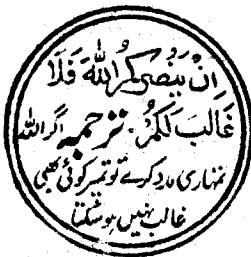 اِنْ يَّنْصُرْكُمُ اللّٰهُ فَلَا
غَالِبَ لَكُمْ ترجمہ اگر اللہ
تمہاری مدد کرے تو تمپر کوئی بھی
غالب نہیں ہو سکتا